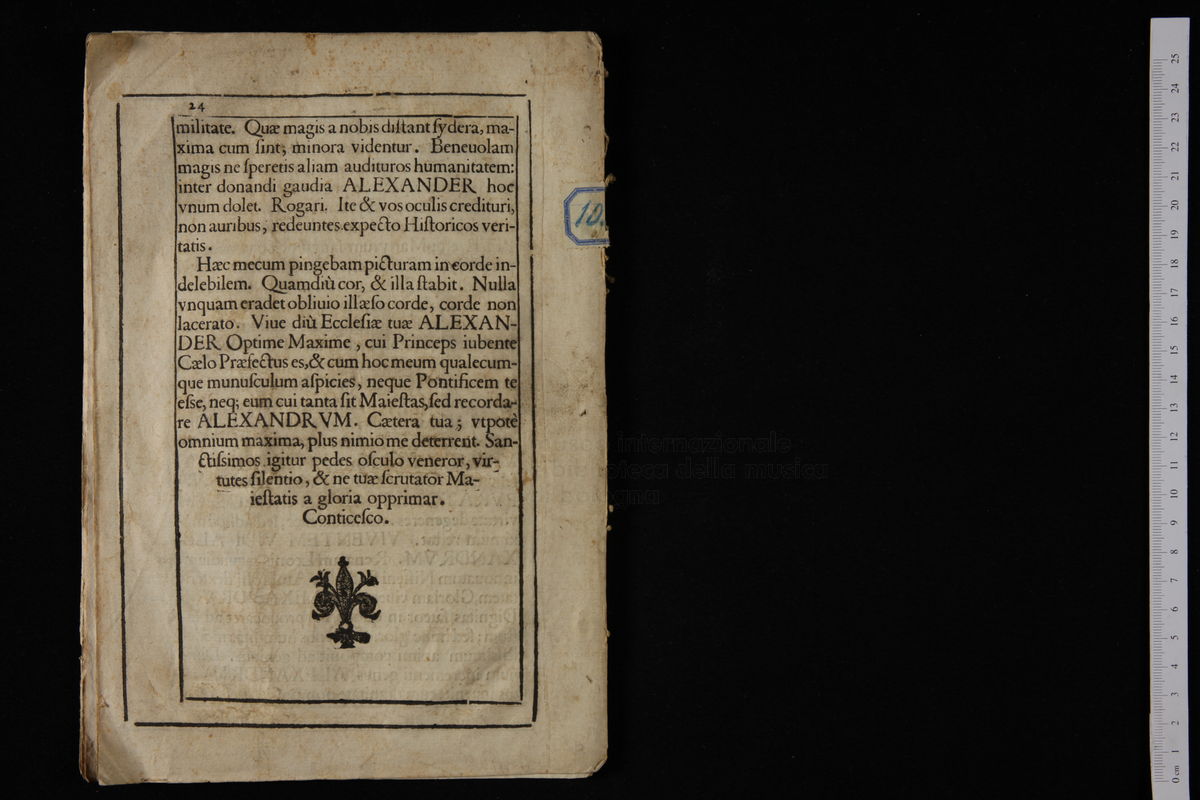 24
militate. Quæ magis a nobis diſtant ſydera, ma-
xima cum ſint; minora videntur. Beneuolam
magis ne ſperetis aliam audituros humanitatem:
inter donandi gaudia ALEXANDER hoc
vnum dolet. Rogari. Ite & vos oculis credituri,
non auribus; redeuntes expecto Hiſtoricos veri-
tatis.
Hæc mecum pingebam picturam in corde in-
delebilem. Quamdiù cor, & illa ſtabit. Nulla
vnquam eradet obliuio illæſo corde, corde non
lacerato. Viue diù Eccleſiæ tuæ ALEXAN-
DER Optime Maxime, cui Princeps iubente
Cælo Præfectus es, & cum hoc meum qualecum-
que munuſculum aſpicies, neque Pontificem te
eſse, neq; eum cui tanta ſit Maieſtas, ſed recorda-
re ALEXANDRVM. Cætera tua; vtpotè
omnium maxima, plus nimio me deterrent. San-
ctiſsimos igitur pedes oſculo veneror, vir-
tutes ſilentio, & ne tuæ ſcrutator Ma-
ieſtatis a gloria opprimar.
Conticeſco.
10.
internazionale
della musica
25
24
23
22
21
20
19
18
17
16
15
14
13
12
11
10
9
8
7
6
5
4
3
2
1
0 cm